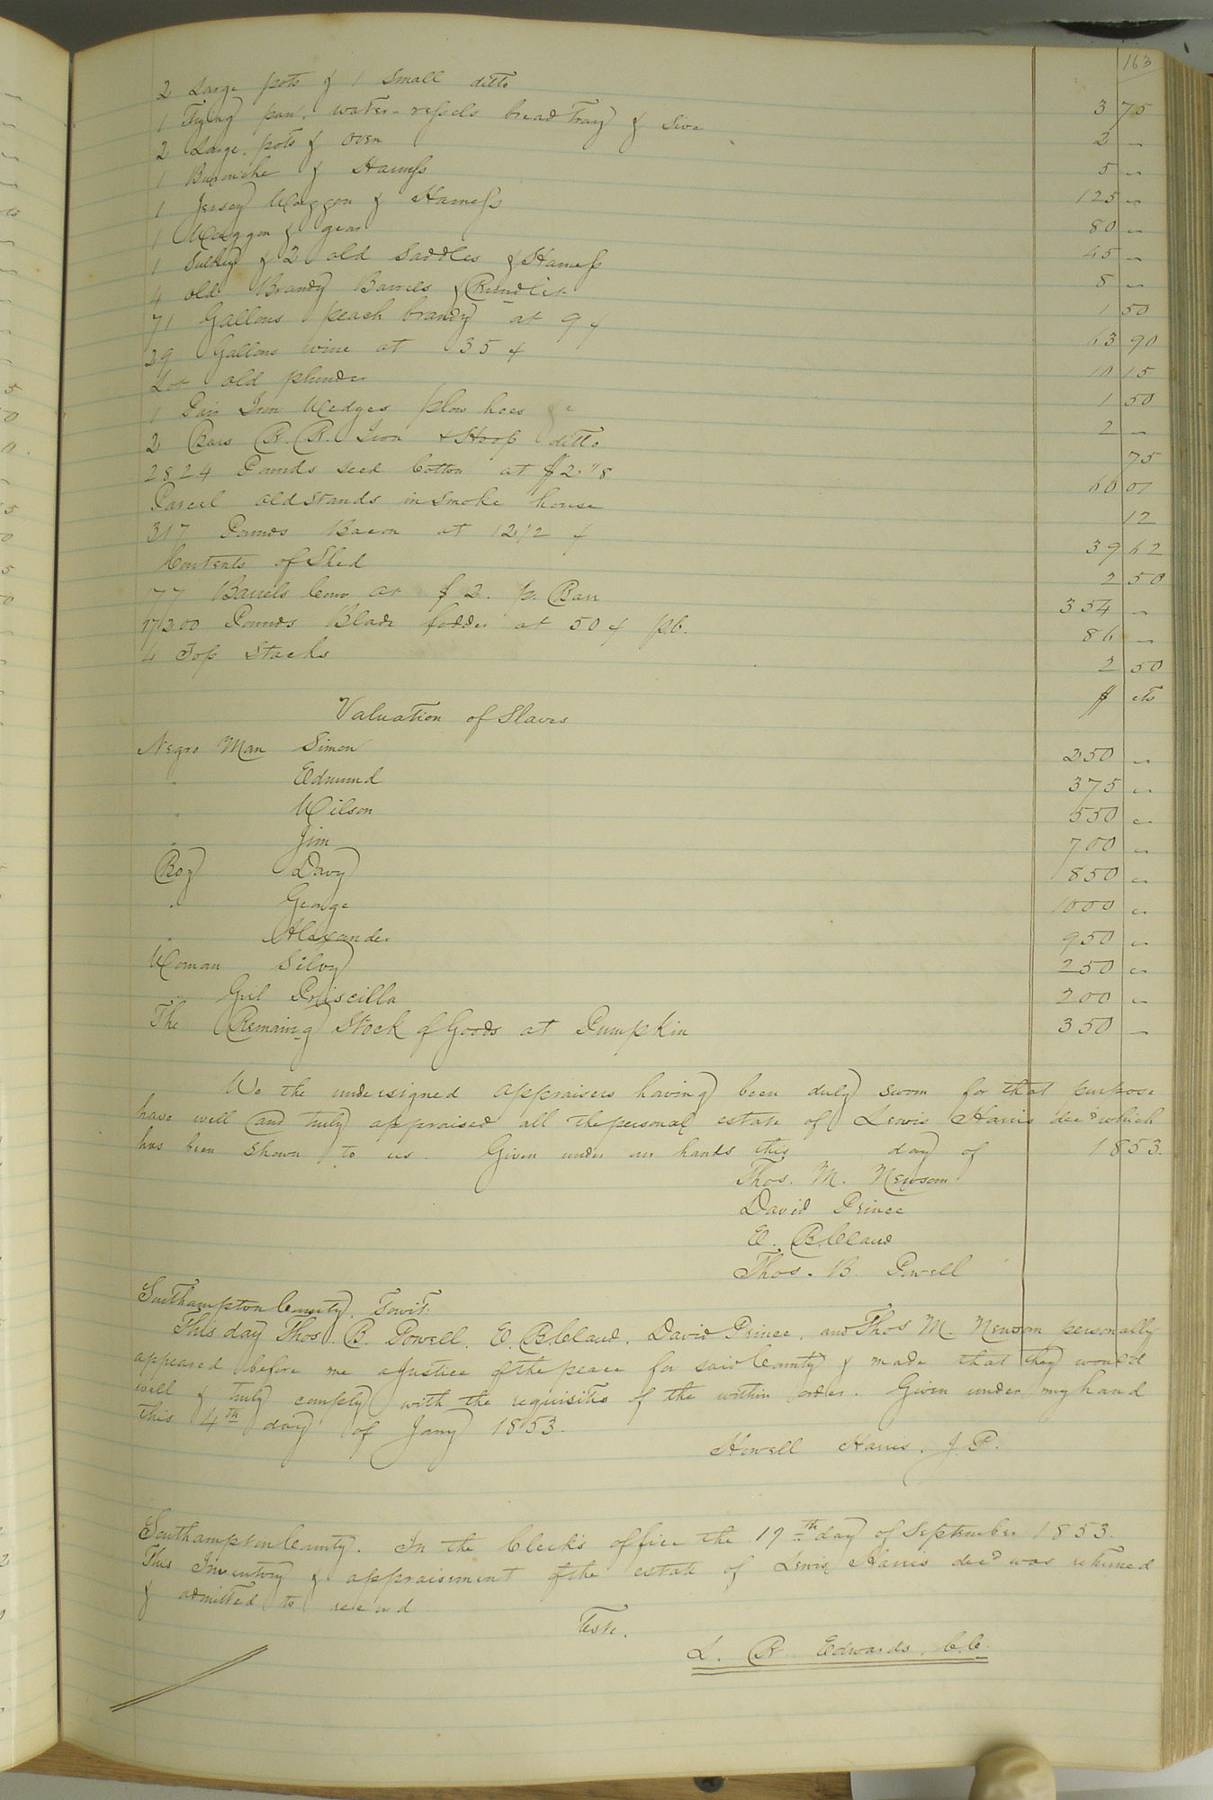 163
2 Large pots & 1 Small ditto 3 75
1 Frying pan, water-vessels bread Tray & Sive 2 "
2 Large pots & oven 5 "
1 Barouche & Harness 125 "
1 Jersey Waggon & Harness 80 "
1 Waggon & gear 45 "
1 Sulkey & 2 old Saddles & Harness 8 "
4 old Brandy Barrels & Rundlet 1 50
71 Gallons peach brandy at 9 ¢ 63 90
29 Gallons wine at 35 ¢ 10 15
Lot old plunder 1 50
1 Pair Iron Wedges plow hoes &c 2 "
2 Bars R. R. Iron & Hoop ditto 75
2824 Pounds seed Cotton at $2. 60 01
Parcel old stands in smoke house 12
317 Pounds Bacon at 12 1/2 ¢ 39 62
Contents of Shed 2 50
Barrels Corn at $2. p. Barr 354 "
17300 Pounds Blade fodder at 50 ¢ 86 "
4 Top Stacks 2 50
Valuation of Slaves $ cts
Negro Man Simon 250 "
" Edmund 375 "
" Wilson 550 "
" Jim 700 "
Boy Davy 850 "
" George 1000 "
" Alexander 950 "
Woman Silvy 250 "
" Girl Priscilla 200 "
The Remaing Stock of Goods at Pumpkin 350 "
We the undersigned appraisers having been duly sworn for that purpose
have well and truly appraised all the personal estate of Lewis Harris decd which
has been shown to us. Given under our hands this day of 1853.
Thos. M. Newsom
David Prince
E. B. Claud
Thos. B. Powell
Southampton County, Towit:
This day Thos. B. Powell, E. B. Claud, David Prince, and Thos M. Newsom personally
appeared before me a justice of the peace for said County & made that they would
well & truly comply with the requisitis of the within order. Given under my hand
this 4th day of Jany 1853.
Howell Harris, J. P.
Southampton County. In the Clerk's office the 19th day of September 1853.
This Inventory & appraisement of the estate of Lewis Harris decd was returned
& admitted to record
Teste.
L. R. Edwards, C.C.